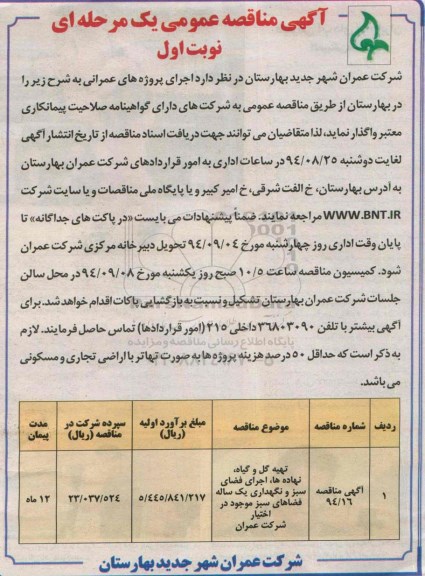 آگهی مناقصه عمومی یک مرحله ای
نوبت اول
شرکت عمران شهر جدید بهارستان در نظر دارد اجرای پروژه های عمرانی به شرح زیر را
در بهارستان از طریق مناقصه عمومی به شرکت های دارای گواهینامه صلاحیت پیمانکاری
معتبر واگذار نماید، لذا متقاضیان می توانند جهت دریافت اسناد مناقصه از تاریخ انتشار آگهی
لغایت دوشنبه ۹۴/۰۸/۲۵ در ساعات اداری به امور قراردادهای شرکت عمران بهارستان
به آدرس بهارستان، خ الفت شرقی، خ امیر کبیر و یا پایگاه ملی مناقصات و یا سایت شرکت
WWW.BNT.IR مراجعه نمایند. ضمناً پیشنهادات می بایست «در پاکت های جداگانه» تا
پایان وقت اداری روز چهارشنبه مورخ ۹۴/۰۹/۰۴ تحویل دبیرخانه مرکزی شرکت عمران
شود. کمیسیون مناقصه ساعت ۱۰/۵ صبح روز یکشنبه مورخ ۹۴/۰۹/۰۸ در محل سالن
جلسات شرکت عمران بهارستان تشکیل و نسبت به بازگشایی پاکات اقدام خواهد شد. برای
آگهی بیشتر با تلفن ۳۶۸۰۳۰۹۰ داخلی ۲۱۵ (امور قراردادها) تماس حاصل فرمایند. لازم
به ذکر است که حداقل ۵۰ درصد هزینه پروژه ها به صورت تهاتر با اراضی تجاری و مسکونی
می باشد.
ردیف شماره مناقصه موضوع مناقصه مبلغ برآورد اولیه (ریال) سپرده شرکت در مناقصه (ریال) مدت پیمان
۱ آگهی مناقصه ۹۴/۱۶ تهیه گل و گیاه، نهاده ها، اجرای فضای سبز و نگهداری یک ساله فضاهای سبز موجود در اختیار شرکت عمران ۵/۴۴۵/۸۴۱/۲۱۷ ۲۳/۰۳۷/۵۲۴ ۱۲ ماه
شرکت عمران شهر جدید بهارستان